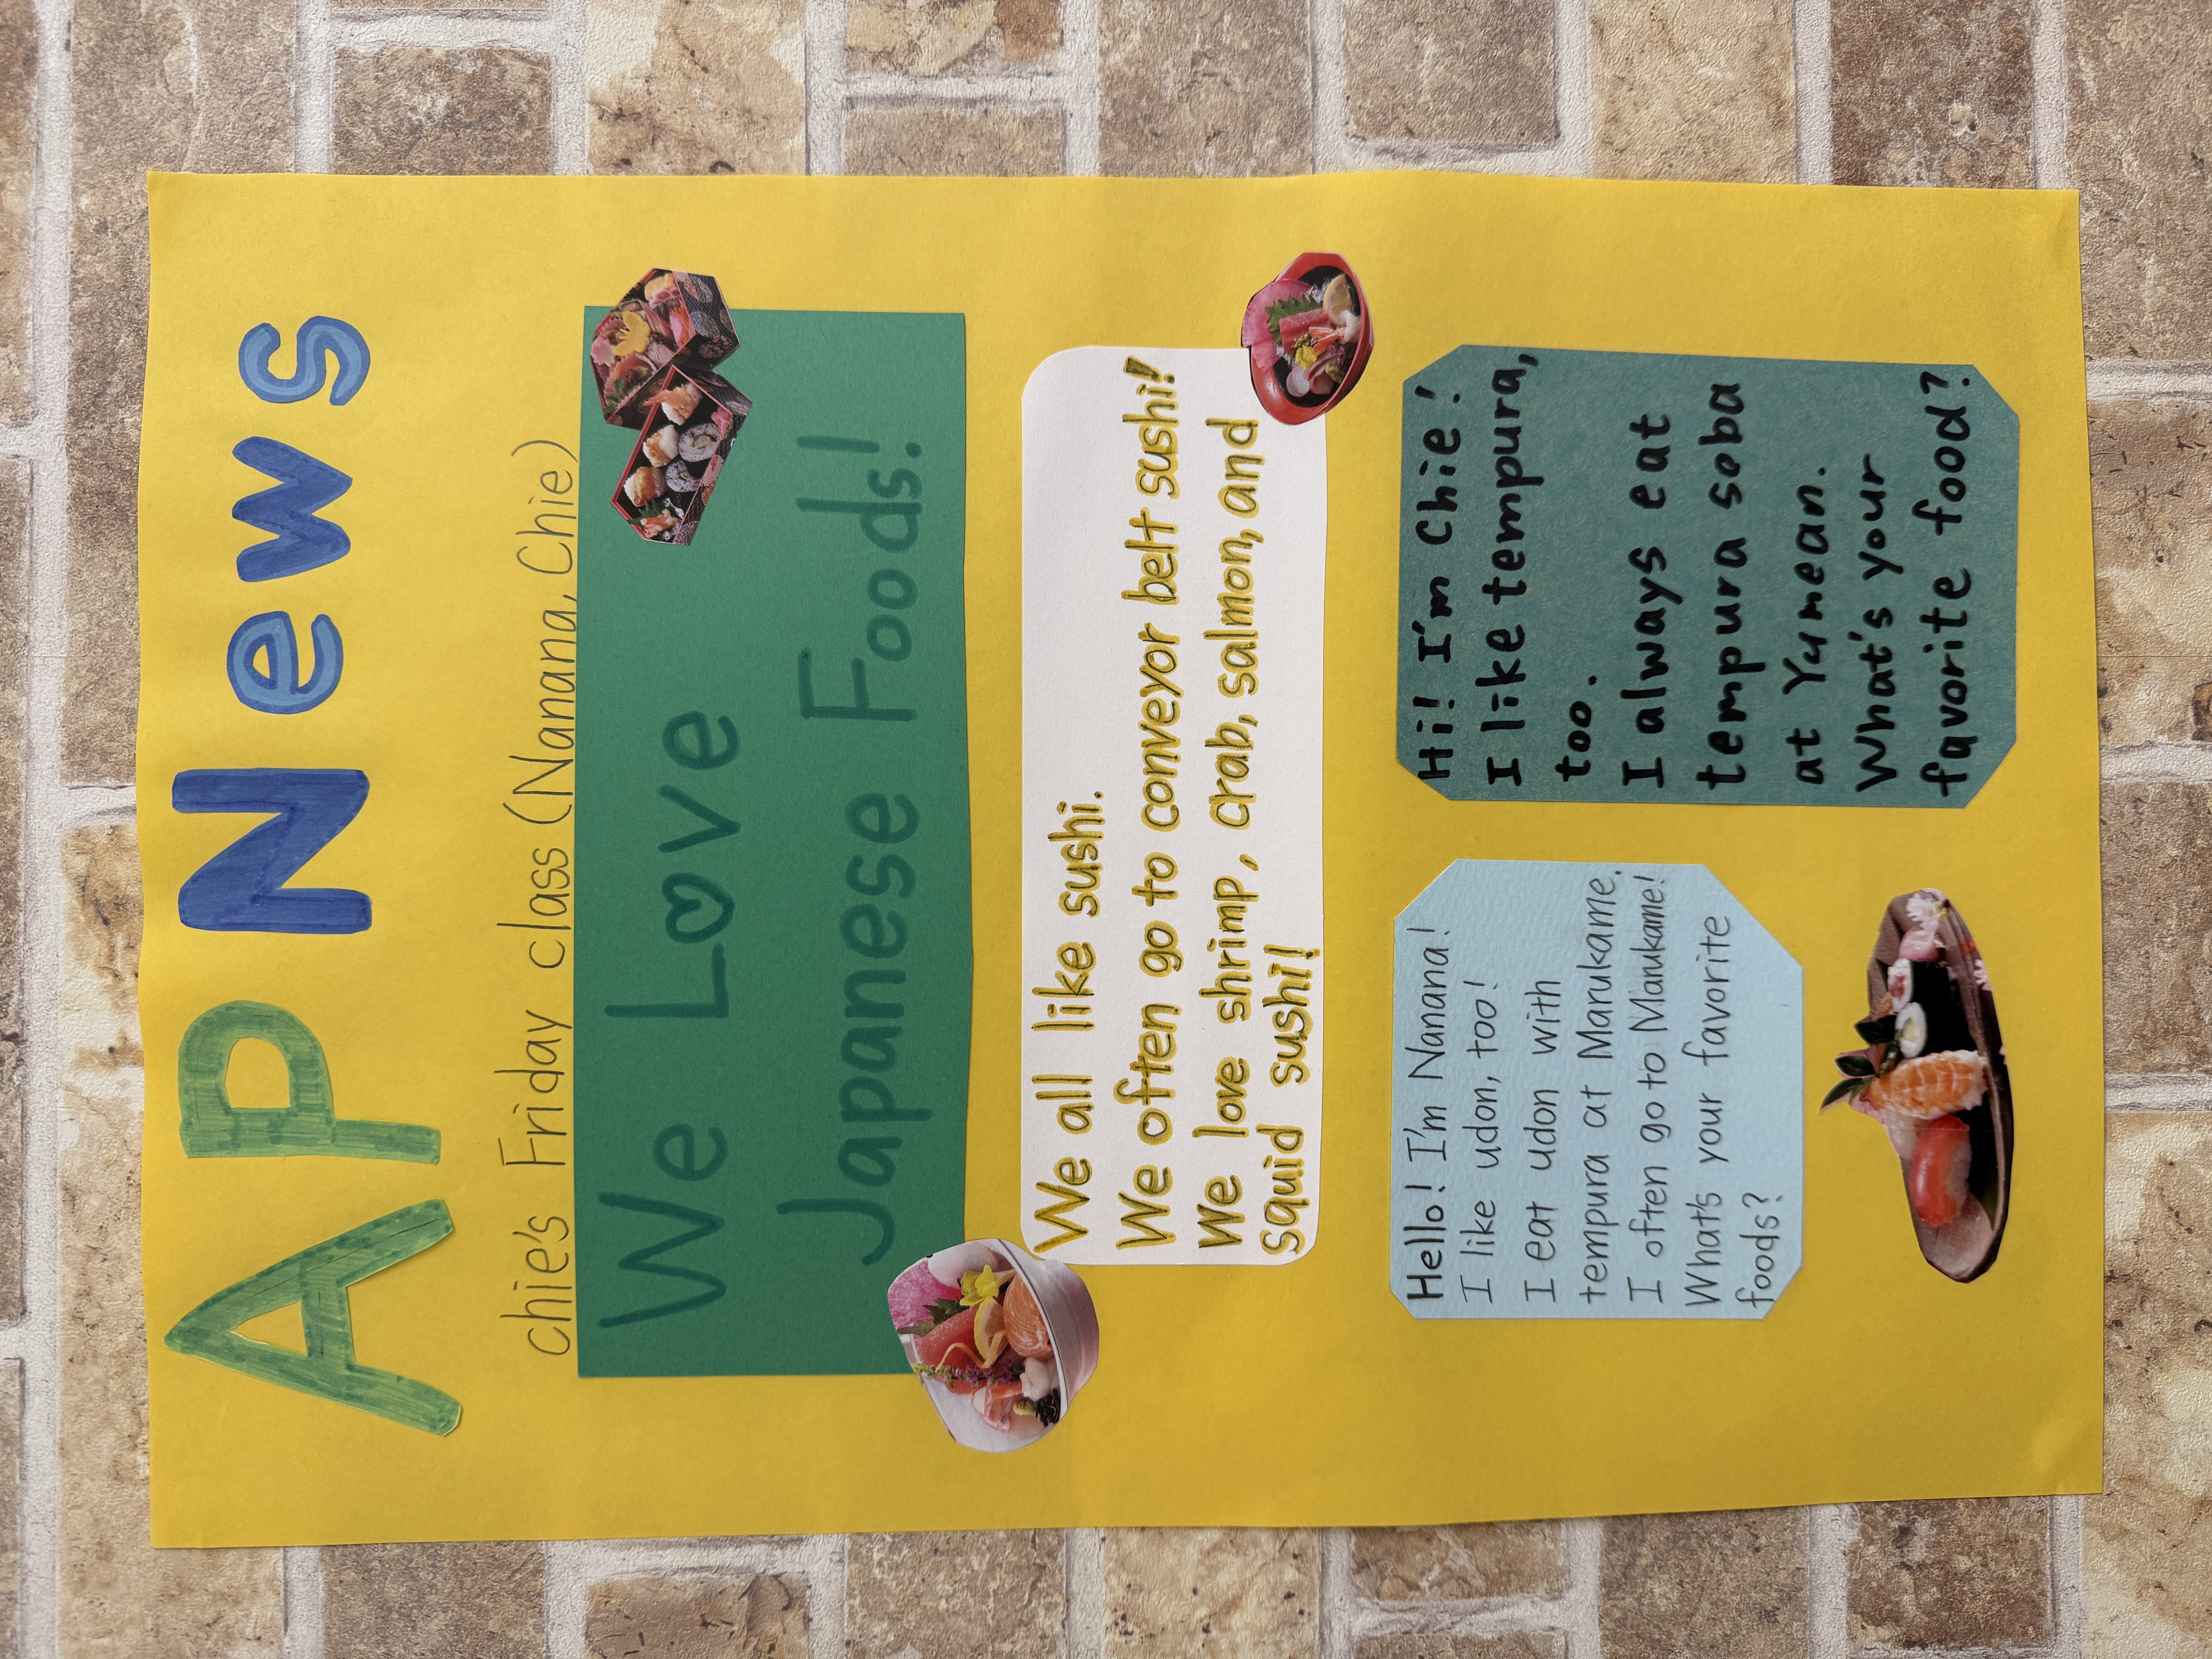 AP News
chie's Friday class (Nanana, Chie)
We Love
Japanese Foods!
We all like sushi.
We often go to conveyor belt sushi!
We love shrimp, crab, salmon, and
squid sushi!
Hello! I'm Nanana!
I like udon, too!
I eat udon with
tempura at Marukame.
I often go to Marukame!
What's your favorite
foods?
Hi! I'm Chie!
I like tempura,
too.
I always eat
tempura soba
at Yumean.
What's your
favorite food?